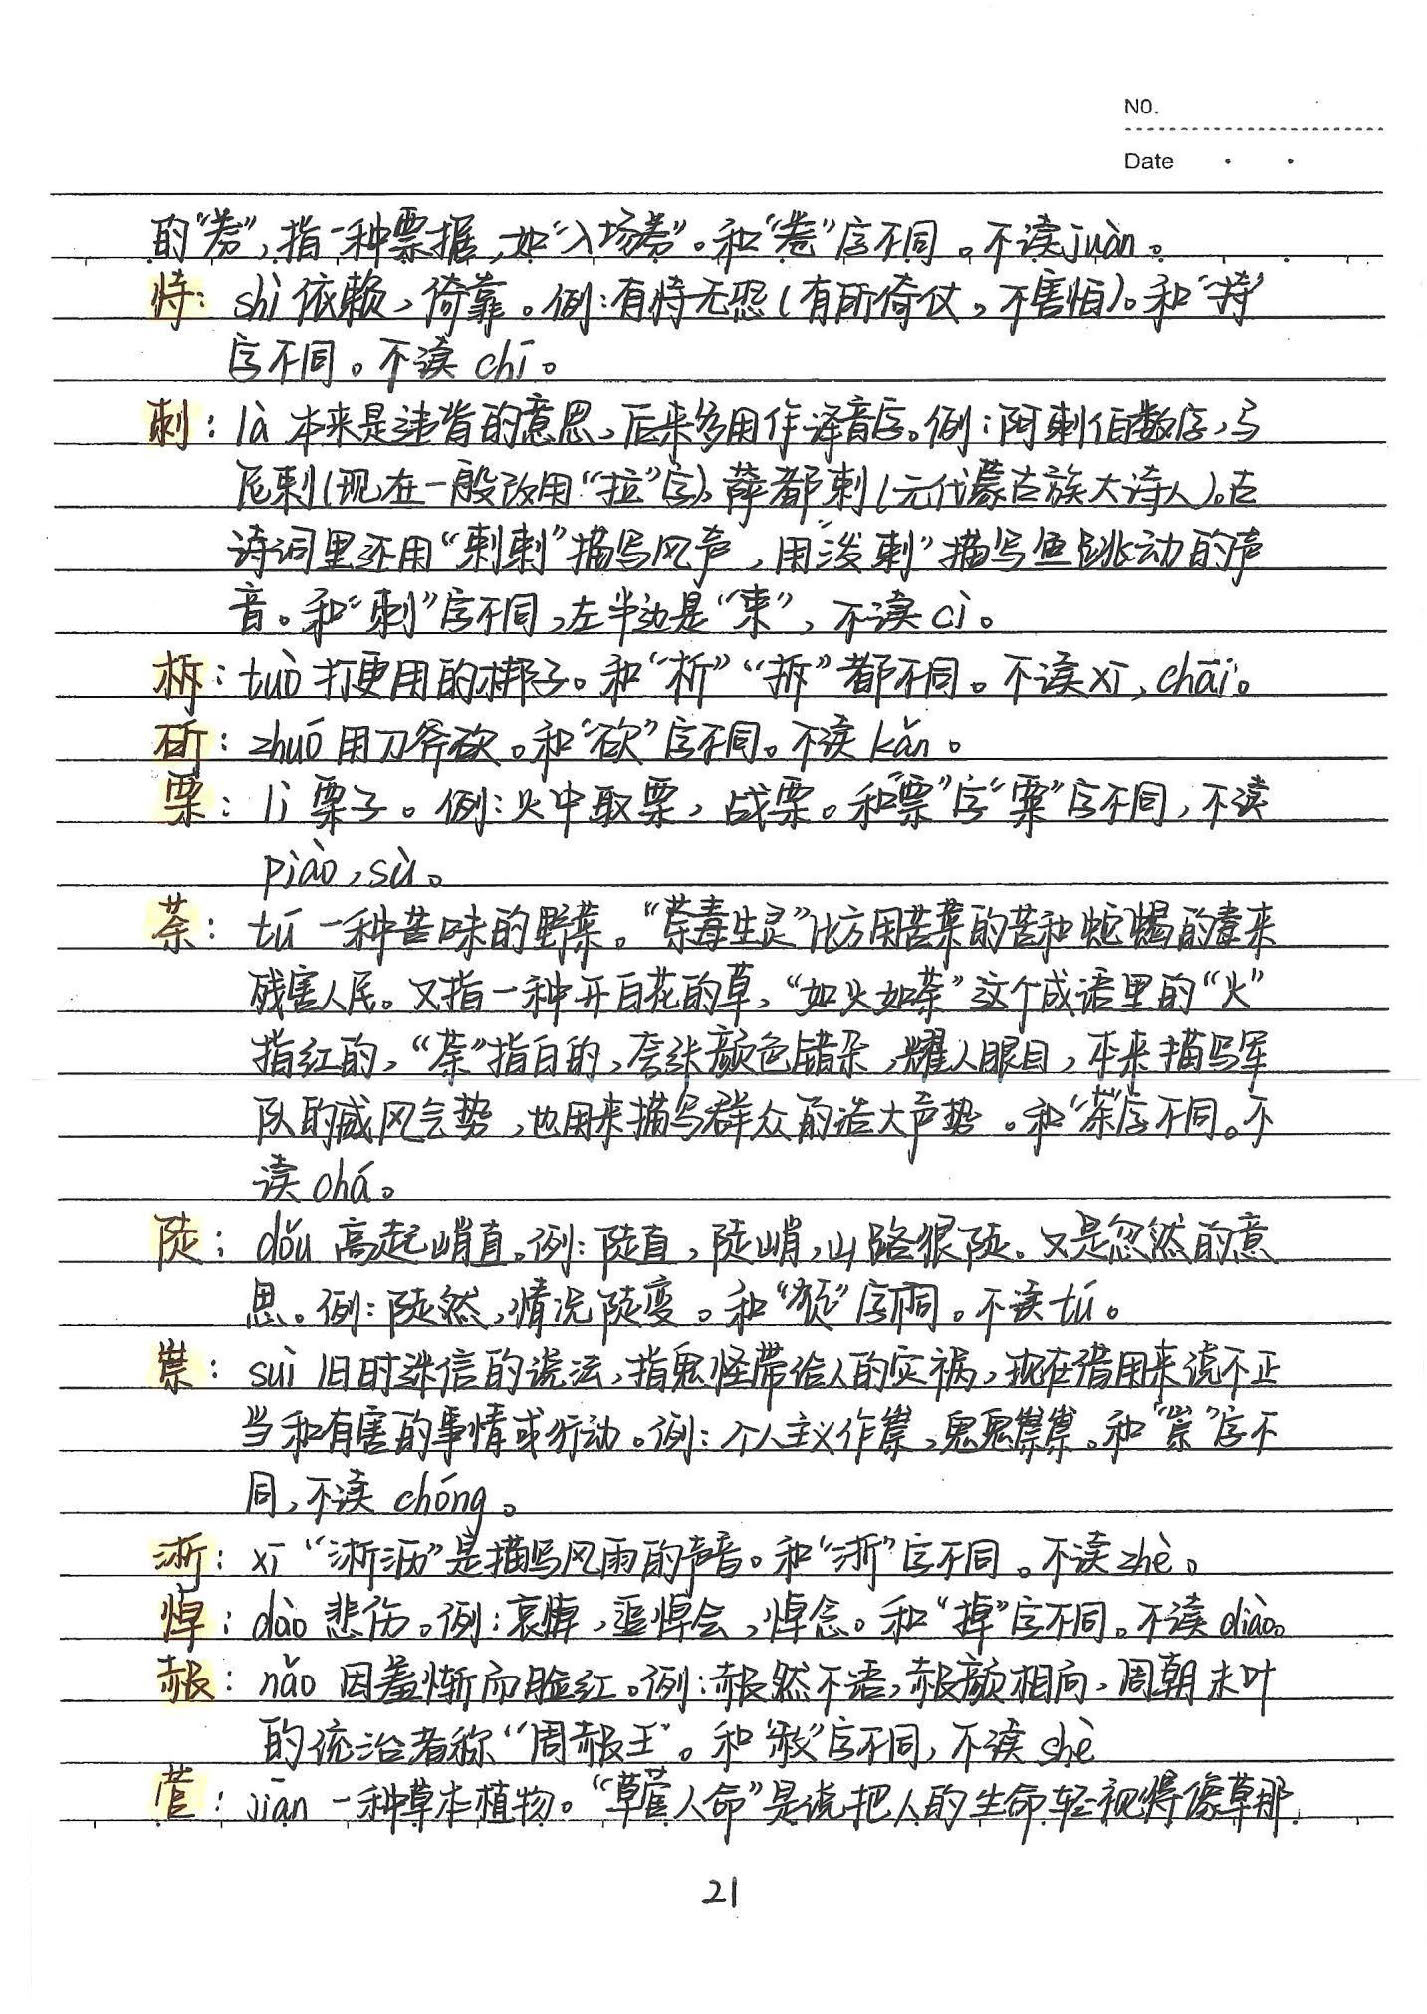 NO.
Date
的“券”，指一种票据，如“入场券”。和“卷”字不同。不读juàn。
恃：shì 依赖，倚靠。例：有恃无恐(有所倚仗，不害怕)。和“持”
字不同。不读 chí。
剌：là 本来是违背的意思，后来多用作译音字。例：阿剌伯数字，马
尼剌(现在一般改用“拉”字)，萨都剌(元代蒙古族大诗人)。古
诗词里还用“剌剌”描写风声，用“泼剌”描写鱼跳动的声
音。和“刺”字不同，左半边是“束”，不读cì。
柝：tuò 打更用的梆子。和“析”“拆”都不同。不读xī，chāi。
斫：zhuó 用刀斧砍。和“砍”字不同。不读 kǎn。
栗：lì 栗子。例：火中取栗，战栗。和“票”字“粟”字不同，不读
piào，sù。
荼：tú 一种苦味的野菜。“荼毒生灵”比方用苦菜的苦和蛇蝎的毒来
残害人民。又指一种开白花的草，“如火如荼”这个成语里的“火”
指红的，“荼”指白的，夸张颜色错杂，耀人眼目，本来描写军
队的威风气势，也用来描写群众的浩大声势。和“茶”字不同。不
读chá。
陡：dǒu 高起峭直。例：陡直，陡峭，山路很陡。又是忽然的意
思。例：陡然，情况陡变。和“徒”字不同。不读tú。
祟：suì 旧时迷信的说法，指鬼怪带给人的灾祸，现在借用来说不正
当和有害的事情或行动。例：个人主义作祟，鬼鬼祟祟。和“崇”字不
同，不读 chóng。
淅：xī “淅沥”是描写风雨的声音。和“浙”字不同。不读zhè。
悼：dào 悲伤。例：哀悼，追悼会，悼念。和“掉”字不同。不读diào。
赧：nǎo 因羞惭而脸红。例：赧然不语，赧颜相向，周朝末叶
的统治者称“周赧王”。和“赦”字不同，不读 shè
菅：jiān 一种草本植物。“草菅人命”是说把人的生命轻视得像草那
21